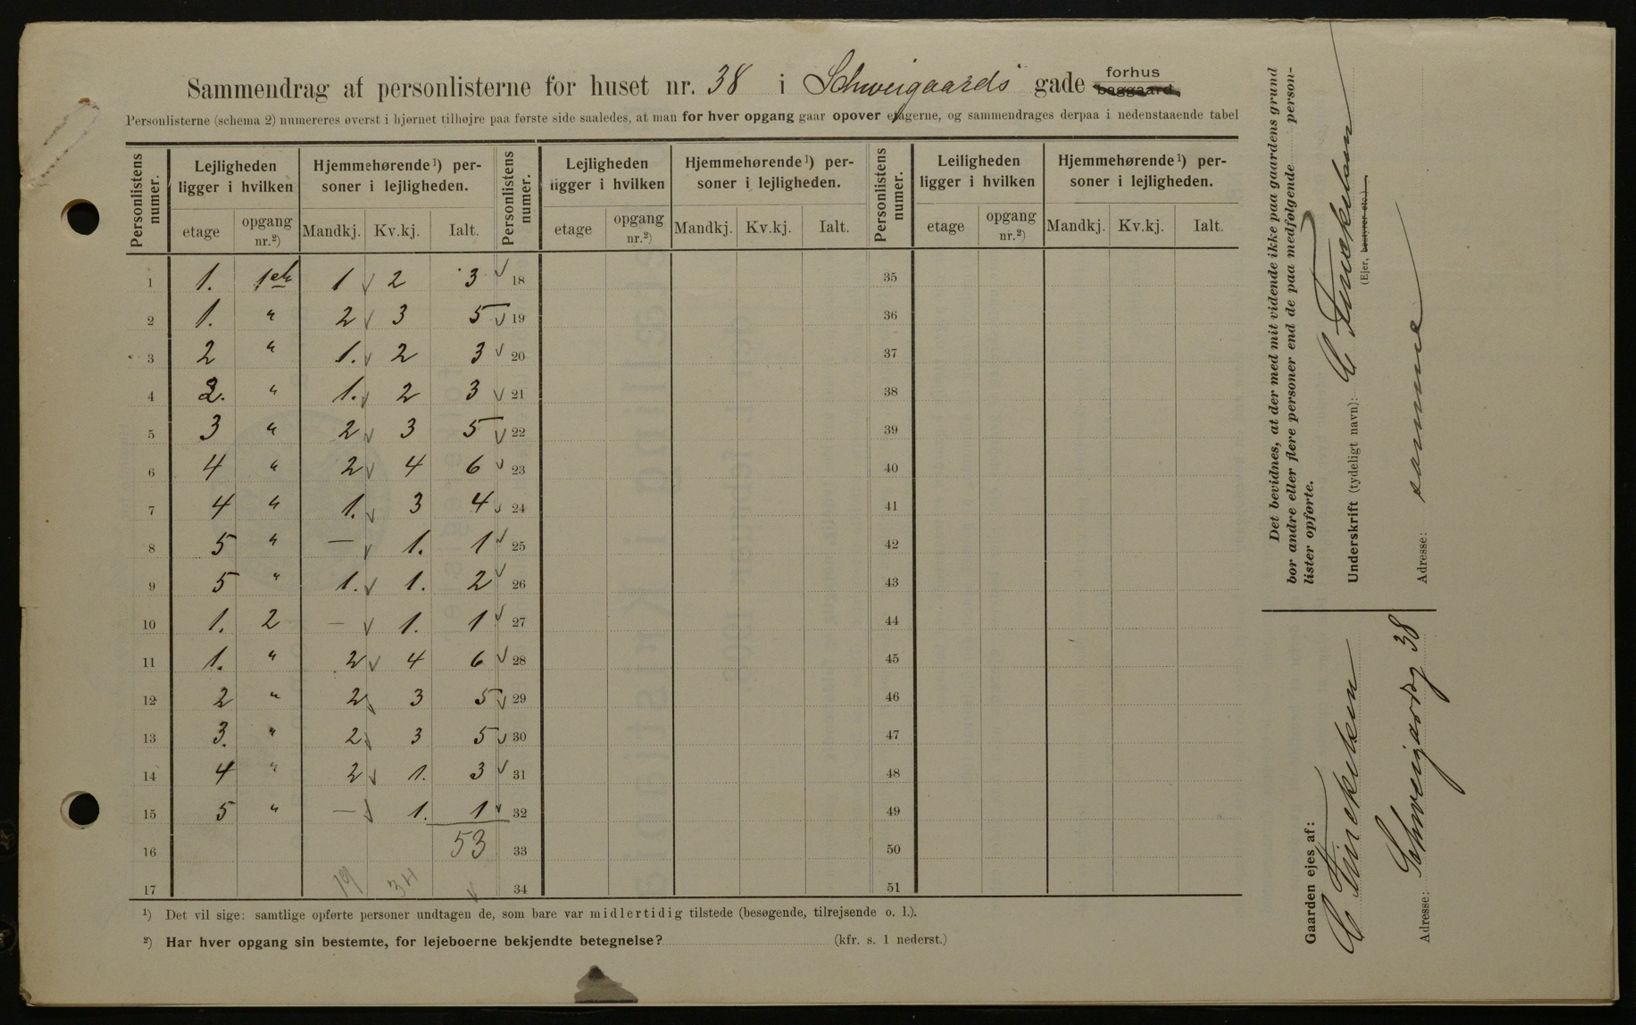 Sammendrag af personlisterne for huset nr. 38 i Schweigaards gade forhus baggaard
Personlisterne (schema 2) numereres øverst i hjørnet tilhøjre paa første side saaledes, at man for hver opgang gaar opover etagerne, og sammendrages derpaa i nedenstaaende tabel
Personlistens numer. Lejligheden ligger i hvilken Hjemmehørende ¹) personer i lejligheden. Personlistens numer. Lejligheden ligger i hvilken Hjemmehørende ¹) personer i lejligheden. Personlistens numer. Leiligheden ligger i hvilken Hjemmehørende ¹) personer i lejligheden.
etage opgang nr.²) Mandkj. Kv.kj. Ialt. etage opgang nr.²) Mandkj. Kv.kj. Ialt. etage opgang nr.²) Mandkj. Kv.kj. Ialt.
1 1. 1 2 3 18 35
2 1. " 2 3 5 19 36
3 2 " 1. 2 3 20 37
4 2. " 1. 2 3 21 38
5 3 " 2 3 5 22 39
6 4 " 2 4 6 23 40
7 4 " 1. 3 4 24 41
8 5 " — 1. 1 25 42
9 5 " 1. 1. 2 26 43
10 1. 2 — 1. 1 27 44
11 1. " 2 4 6 28 45
12 2 " 2 3 5 29 46
13 3. " 2 3 5 30 47
14 4 " 2 1. 3 31 48
15 5 " — 1. 1 32 49
16 53 33 50
17 19 34 34 51
¹) Det vil sige: samtlige opførte personer undtagen de, som bare var midlertidig tilstede (besøgende, tilrejsende o. l.).
²) Har hver opgang sin bestemte, for lejeboerne bekjendte betegnelse? (kfr. s. 1 nederst.)
Det bevidnes, at der med mit vidende ikke paa gaardens grund
bor andre eller flere personer end de paa medfølgende person-
lister opførte.
Underskrift (tydeligt navn): C
(Ejer, bestyrer etc.)
Adresse: samme
Gaarden ejes af:
C
Adresse: Schweigaardsg 38